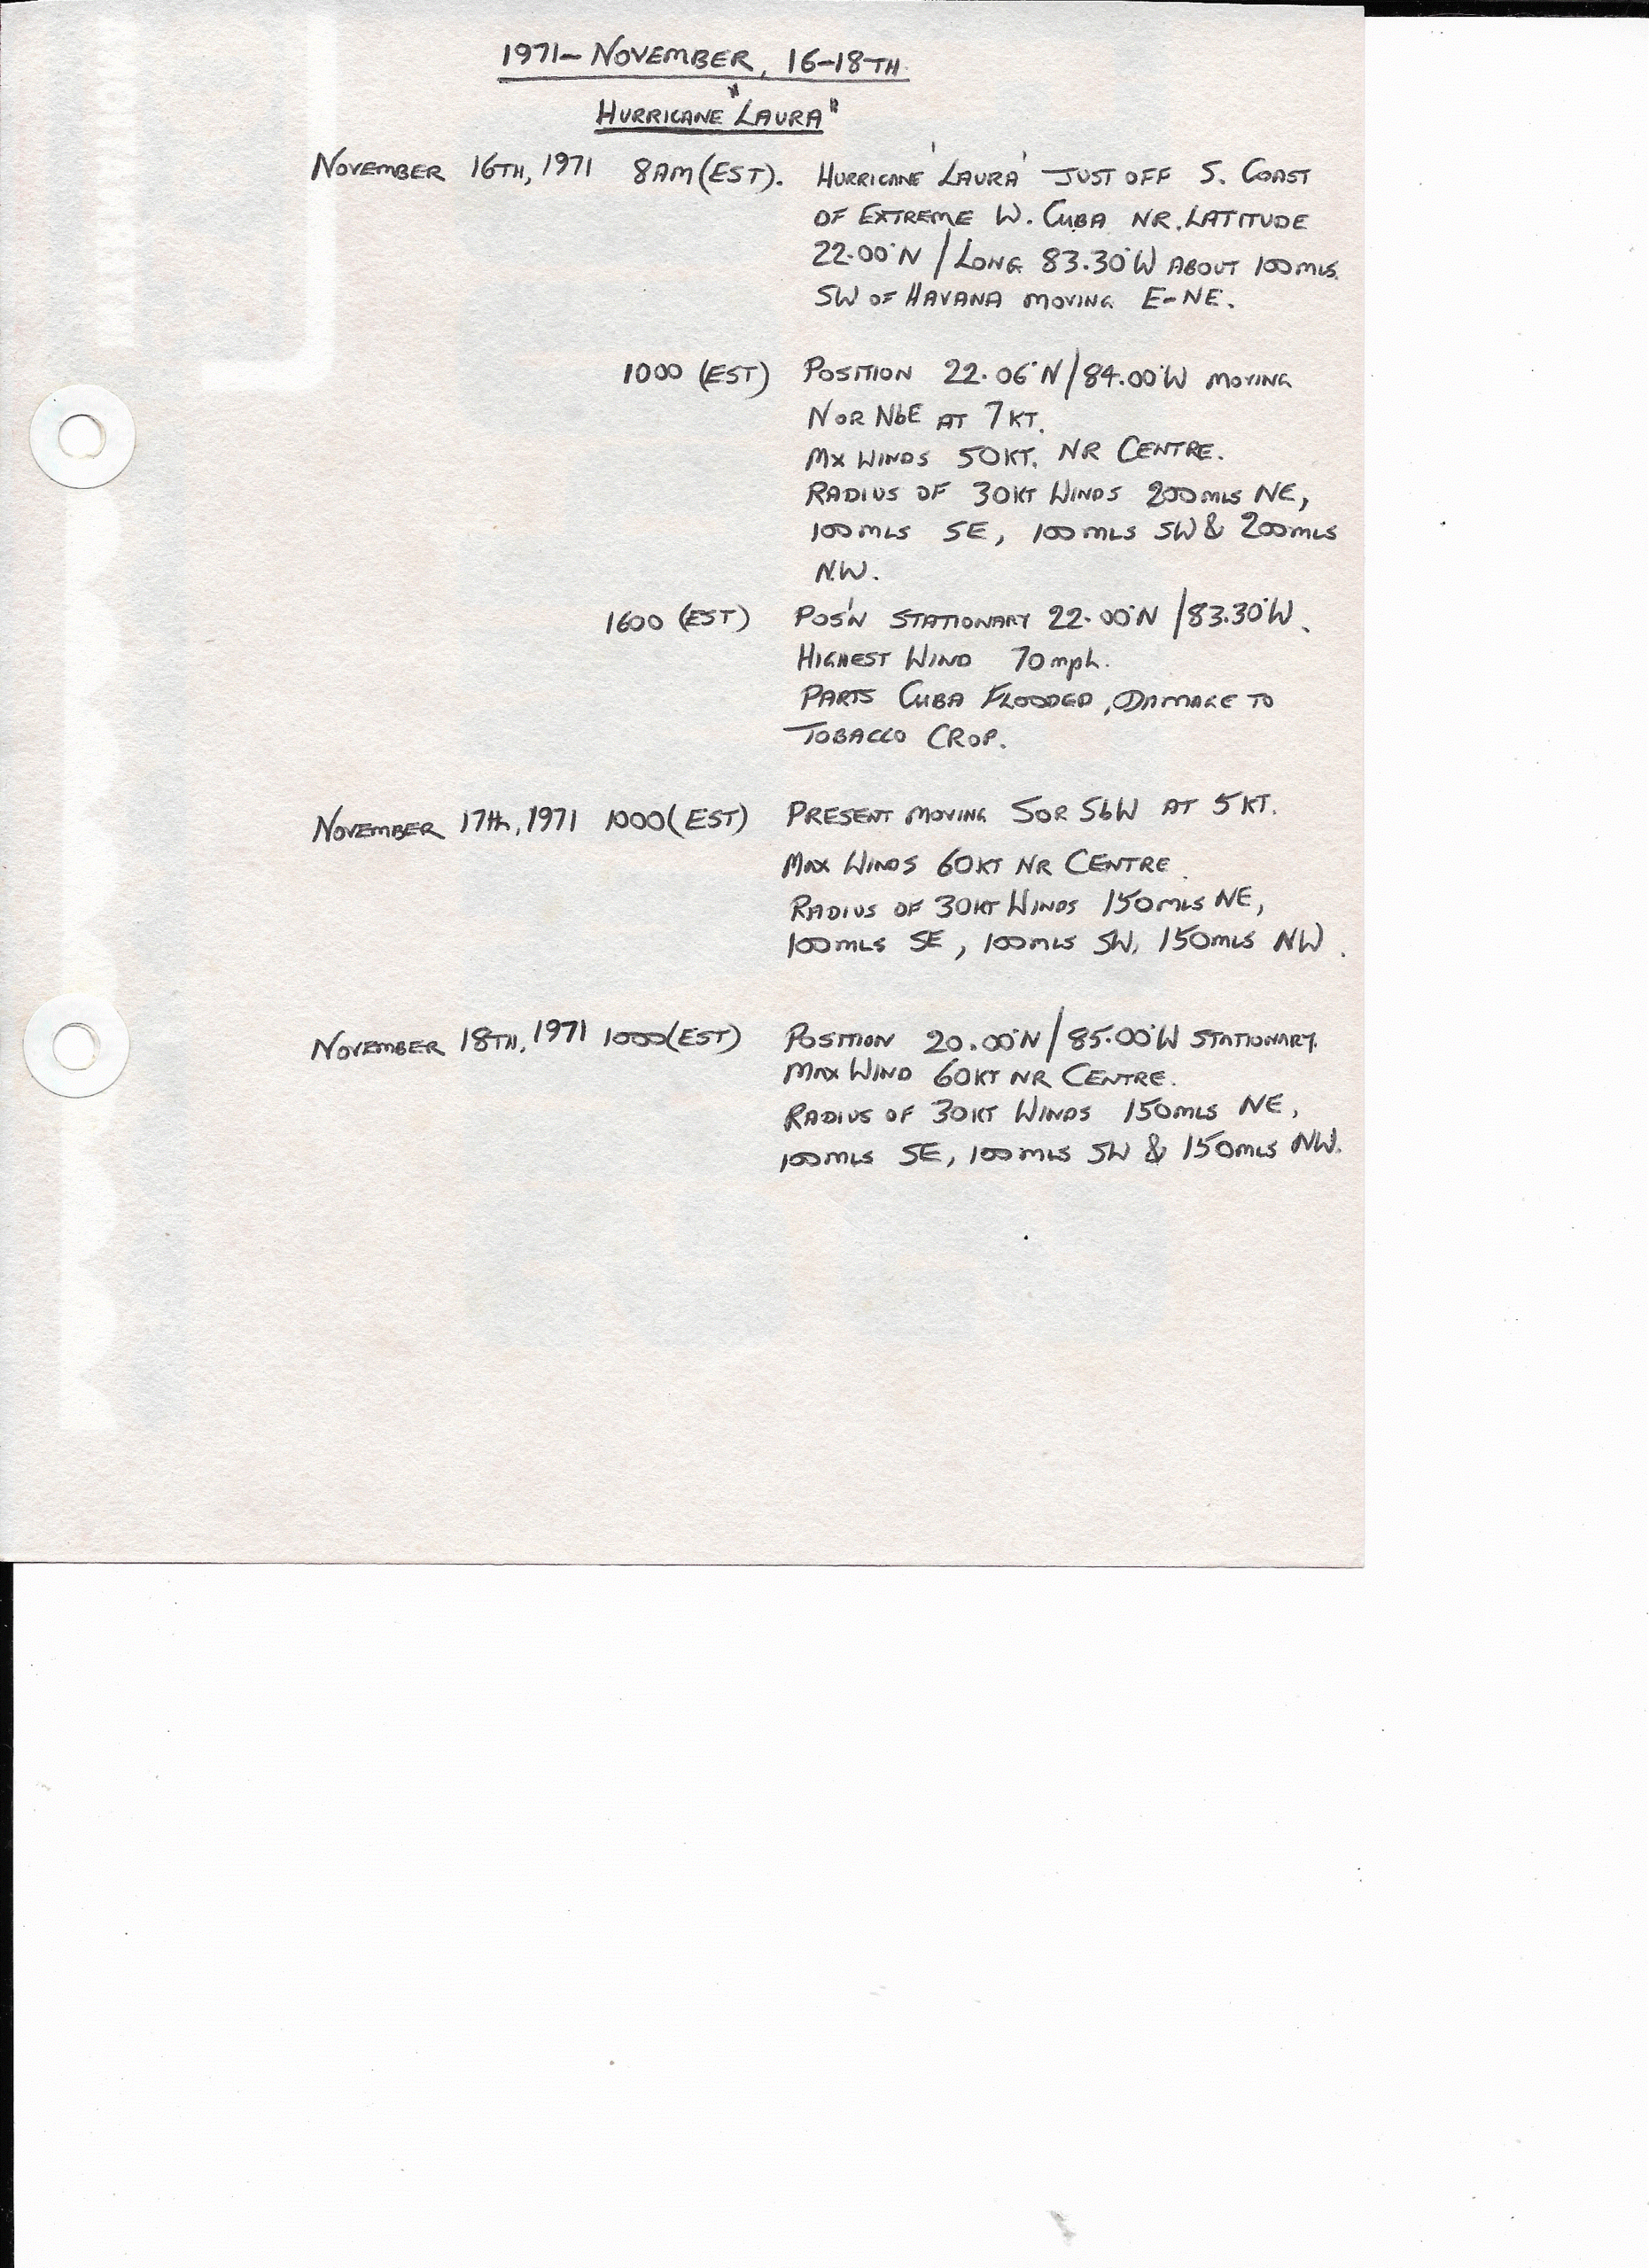 1971- NOVEMBER, 16-18TH.
HURRICANE "LAURA"
NOVEMBER 16TH, 1971 8AM (EST). HURRICANE 'LAURA' JUST OFF S. COAST
OF EXTREME W. CUBA NR. LATITUDE
22.00°N / LONG 83.30°W ABOUT 100 MLS.
SW OF HAVANA MOVING E-NE.
1000 (EST) POSITION 22.06°N / 84.00°W MOVING
N OR NbE AT 7 KT.
MX WINDS 50KT. NR CENTRE.
RADIUS OF 30KT WINDS 200 MLS NE,
100 MLS SE, 100 MLS SW & 200 MLS
N.W.
1600 (EST) POS'N STATIONARY 22.00°N / 83.30°W.
HIGHEST WIND 70 mph.
PARTS CUBA FLOODED, DAMAGE TO
TOBACCO CROP.
NOVEMBER 17th, 1971 1000 (EST) PRESENT MOVING S OR SbW AT 5 KT.
MAX WINDS 60KT NR CENTRE.
RADIUS OF 30KT WINDS 150 MLS NE,
100 MLS SE, 100 MLS SW, 150 MLS NW.
NOVEMBER 18TH, 1971 1000 (EST) POSITION 20.00°N / 85.00°W STATIONARY.
MAX WIND 60KT NR CENTRE.
RADIUS OF 30KT WINDS 150 MLS NE,
100 MLS SE, 100 MLS SW & 150 MLS NW.